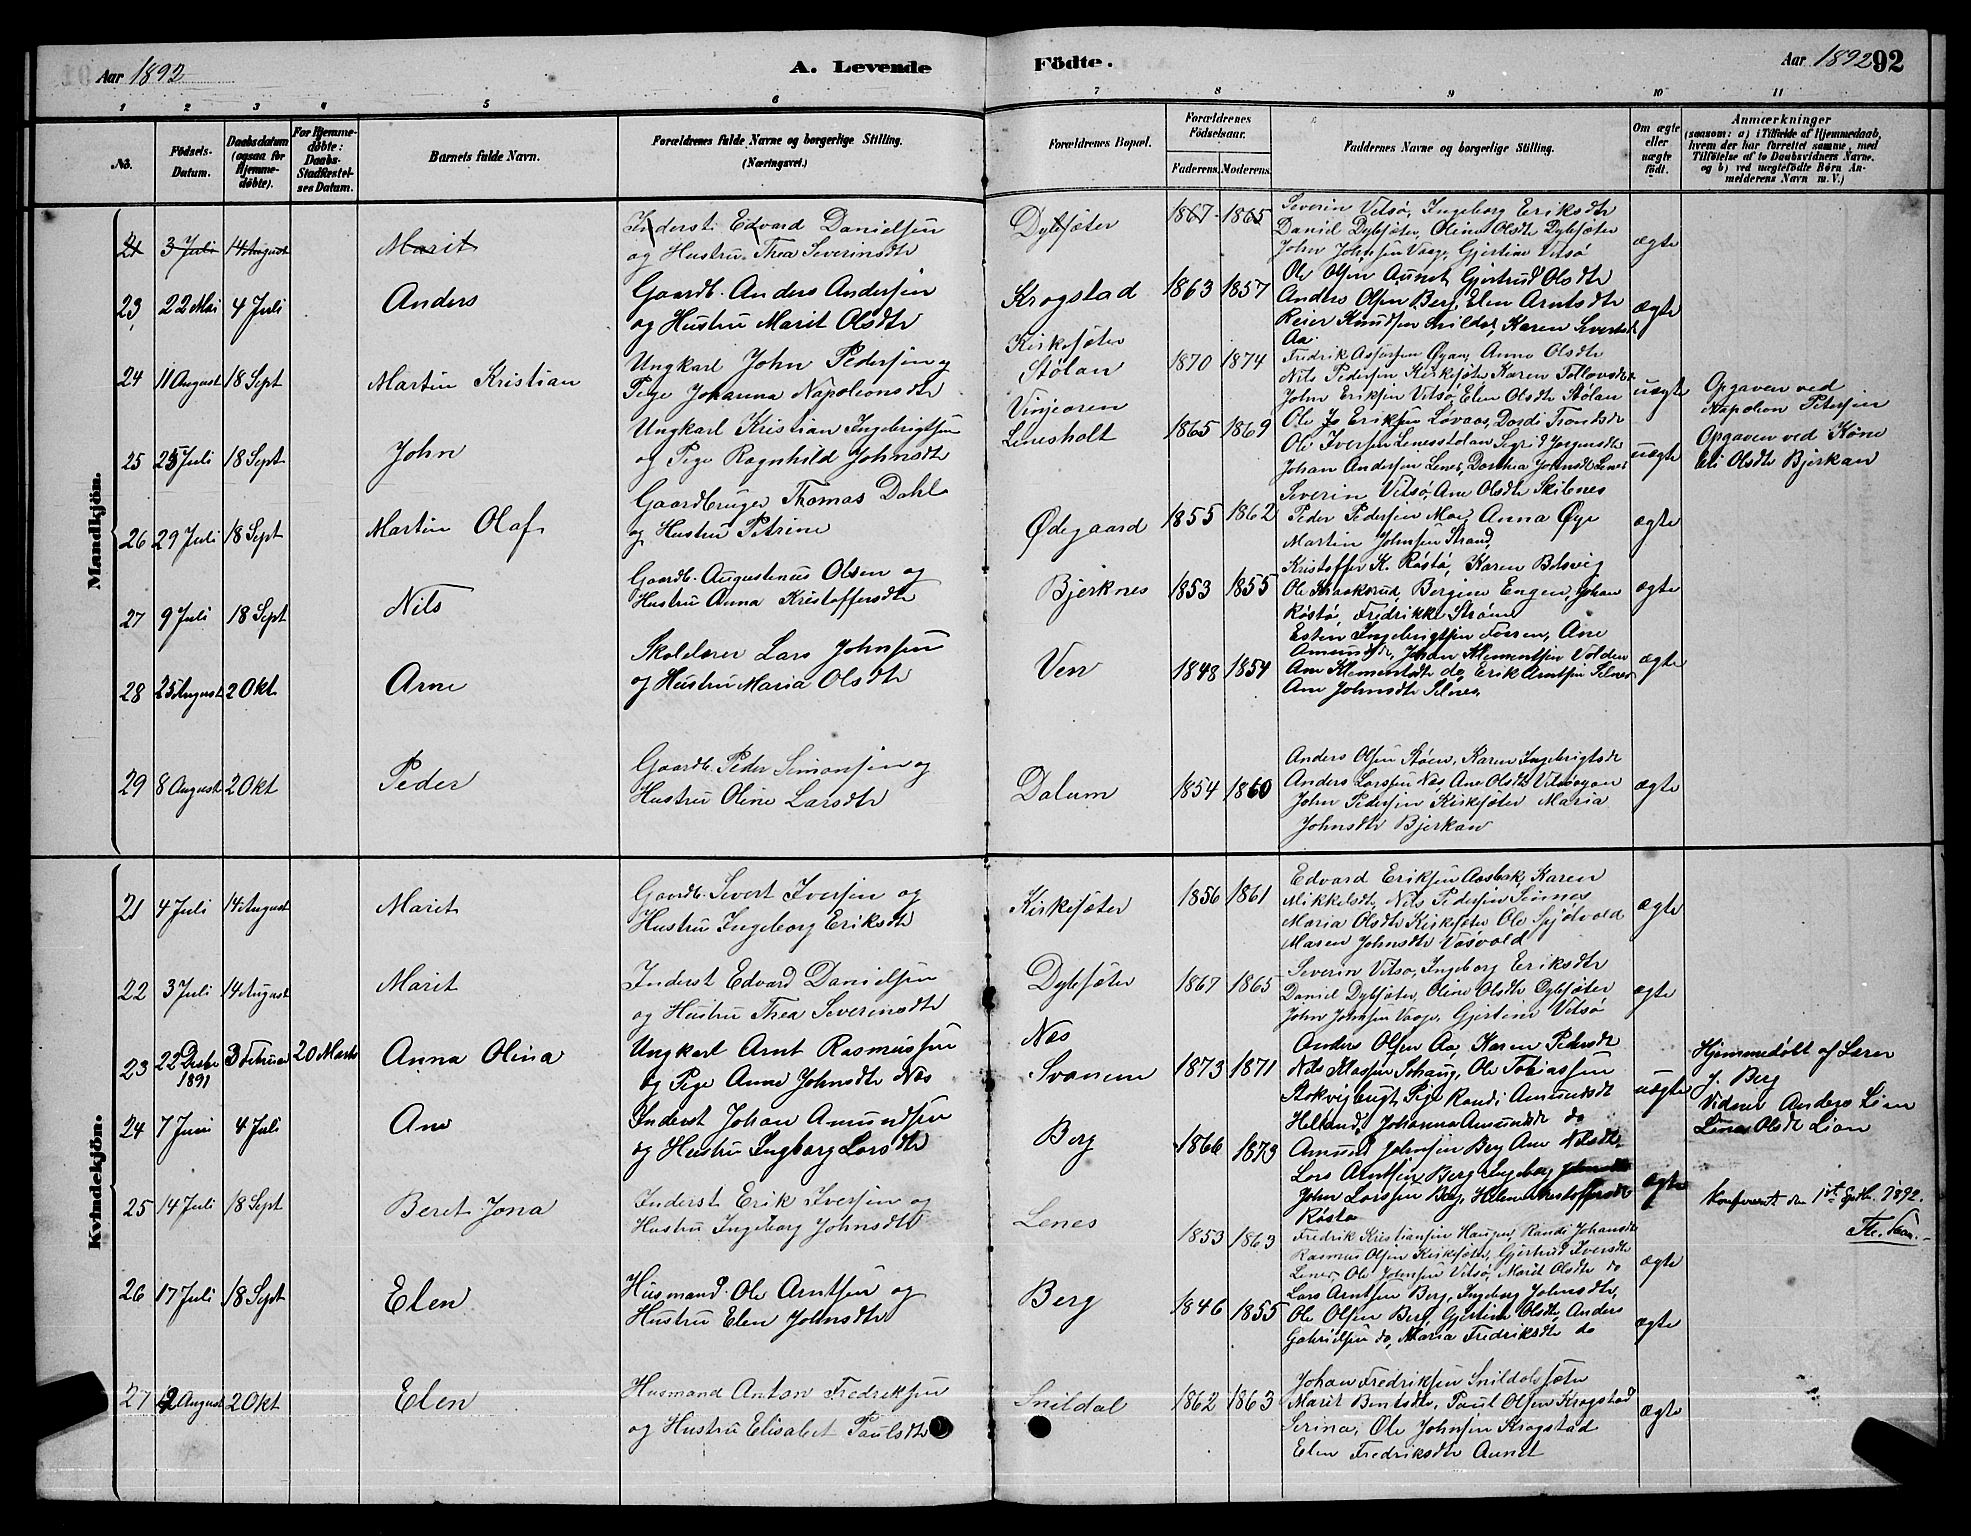 Aar 1892
A. Levende
Födte.
Aar 1892
92
1 2 3 4 5 6 7 8 9 10 11
No.
Födsels-Datum.
Daabsdatum (ogsaa for Hjemme-döbte).
For Hjemme-döbte: Daabs-Stadfæstel-ses Datum.
Barnets fulde Navn.
Forældrenes fulde Navne og borgerlige Stilling. (Næringsvei.)
Forældrenes Bopæl.
Forældrenes Födselsaar.
Faderens. Moderens.
Faddernes Navne og borgerlige Stilling.
Om ægte eller uægte födt.
Anmærkninger
(saasom: a) i Tilfælde af Hjemmedaab, hvem der har forrettet samme, med Tilföielse af to Daabsvidners Navne. og b) ved uægtefödte Börn Anmelderens Navn m. V.)
Mandkjön.
21 3 Juli 14 August Marit
Inderst Edvard Danielsen
og Hustru Thea Severinsdtr
Dylsæter 1867 1865
Severin Vitsø, Ingeborg Eriksdtr
Daniel Dylsæter, Oline Olsdtr Dylsæter
John Johnsen Vaage, Gjertine Vitsø
ægte
23 22 Mai 4 Juli Anders
Gaardb. Anders Andersen
og Hustru Marit Olsdtr
Krogstad 1863 1857
Ole Olsen Aunet, Gjertrud Olsdtr
Anders Olsen Berg, Elen Arntsdtr
Reier Knudsen Snildal, Karen Sivertsdtr
Aa.
ægte
24 11 August 18 Sept Martin Kristian
Ungkarl John Pedersen og
Pige Johanna Napoleonsdtr
Kirkesæter
Stølan 1870 1874
Fredrik Assersen Øyan, Anne Olsdtr
Nils Pedersen Kirkesæter Karen
John Eriksen Vitsø, Elen Olsdtr Stølan
uægte
Opgaven ved
Napoleon Petersen
25 25 Juli 18 Sept John
Ungkarl Kristian Ingebrigtsen
og Pige Ragnhild Johnsdtr
Vinjeøren
Lenesholt 1865 1869
Ole Eriksen Løvaas, Dordi Trondsdr
Ole Iversen Lenesstølan Sigrid Jørgensdtr
Johan Andersen Lenes, Dorthea Johnsdtr Lenes
uægte
Opgaven ved Kone
Eli Olsdtr Bjerkan
26 29 Juli 18 Sept Martin Olaf
Gaardbruger Thomas Dahl
og Hustru Petrine
Ødegaard 1855 1862
Severin Vitsø, Ane Olsdtr Skilnes
Peder Pedersen Moe, Anna Øye
Martin Johnsen Strand,
ægte
27 9 Juli 18 Sept Nils
Gaardb. Augustenus Olsen og
Hustru Anna Kristoffersdtr
Bjerknes 1853 1855
Kristoffer K. Røstø, Karen Belsvig
Ole Kraakerud, Bergine Engen, Johan
Røstø, Fredrikke Strøm
ægte
28 25 August 2 Okt Arne
Skolelærer Lars Johnsen
og Hustru Maria Olsdtr
Ven 1848 1854
Esten Ingebrigtsen Fossen, Ane
Amundsdtr, Johan Klementsen Volden
Ane Klementsdtr do, Erik Arntsen Selnes
Ane Johnsdtr Selnes,
ægte
29 8 August 2 Okt Peder
Gaardb. Peder Simonsen og
Hustru Oline Larsdtr
Dalum 1854 1860
Anders Olsen Støen, Karen Ingebrigtsdtr
Anders Larsen Nes, Ane Olsdtr Vitsøøyan
John Pedersen Kirkesæter Maria
Johnsdtr Bjerkan
ægte
Kvindekjön.
21 4 Juli 14 August Marit
Gaardb. Sivert Iversen og
Hustru Ingeborg Eriksdtr
Kirkesæter 1856 1861
Edvard Eriksen Aasbak, Karen
Mikkelsdtr, Nils Pedersen Sinnes
Maria Olsdtr Kirkesæter Ole Spjøtvold
Maren Johnsdtr Vasvold
ægte
22 3 Juli 14 August Marit
Inderst Edvard Danielsen
og Hustru Thea Severinsdtr
Dylsæter 1867 1865
Severin Vitsø, Ingeborg Eriksdtr
Daniel Dylsæter, Oline Olsdtr Dylsæter
John Johnsen Vaage, Gjertine Vitsø
ægte
23 22 Decbr 1891 3 Februar 20 Marts Anna Olina
Ungkarl Arnt Rasmussen
og Pige Anne Johnsdtr Nes
Nes
Svanem 1873 1871
Anders Olsen Aa, Karen Pedersdtr
Nils Klassen Schaug, Ole Tobiassen
Stokvigbugt, Pige Randi Amundsdt
Helland, Johanna Amundsdt do
uægte
Hjemmedøbt af Lærer
J. Berg
Vidner Anders Lian
Lina Olsdtr Lian
24 7 Juni 4 Juli Ane
Inderst Johan Amundsen
og Hustru Ingborg Larsdtr
Berg 1866 1873
Amund Johnsen Berg Ane Nilsdtr
Lars Arntsen Berg Ingeborg Johnsdtr
John Larsen Berg, Helene Kristoffersdtr
Røstø
ægte
Konfereret den 1ste 1892.
25 14 Juli 18 Sept Beret Jona
Inderst Erik Iversen og
Hustru Ingeborg Johnsdtr
Lenes 1853 1863
Fredrik Kristiansen Haugen, Randi Johansdtr
Rasmus Olsen Kirkesæter, Gjertrud Iversdtr
Lenes, Ole Johnsen Vitsø, Marit Olsdtr do
ægte
26 17 Juli 18 Sept Elen
Husmand Ole Arntsen og
Hustru Elen Johnsdtr
Berg 1846 1855
Lars Arntsen Berg, Ingeborg Johnsdtr,
Ole Olsen Berg, Gjertine Olsdtr, Anders
Gabrielsen do, Maria Fredriksdtr do
ægte
27 12 August 2 Okt Elen
Husmand Anton Fredriksen
og Hustru Elisabet Paulsdtr
Snildal 1862 1863
Johan Fredriksen Snildalsæter
Marit Bentsdtr, Paul Olsen Krogstad
Serina, Ole Johnsen Krogstad
Elen Fredriksdtr Aunet
ægte